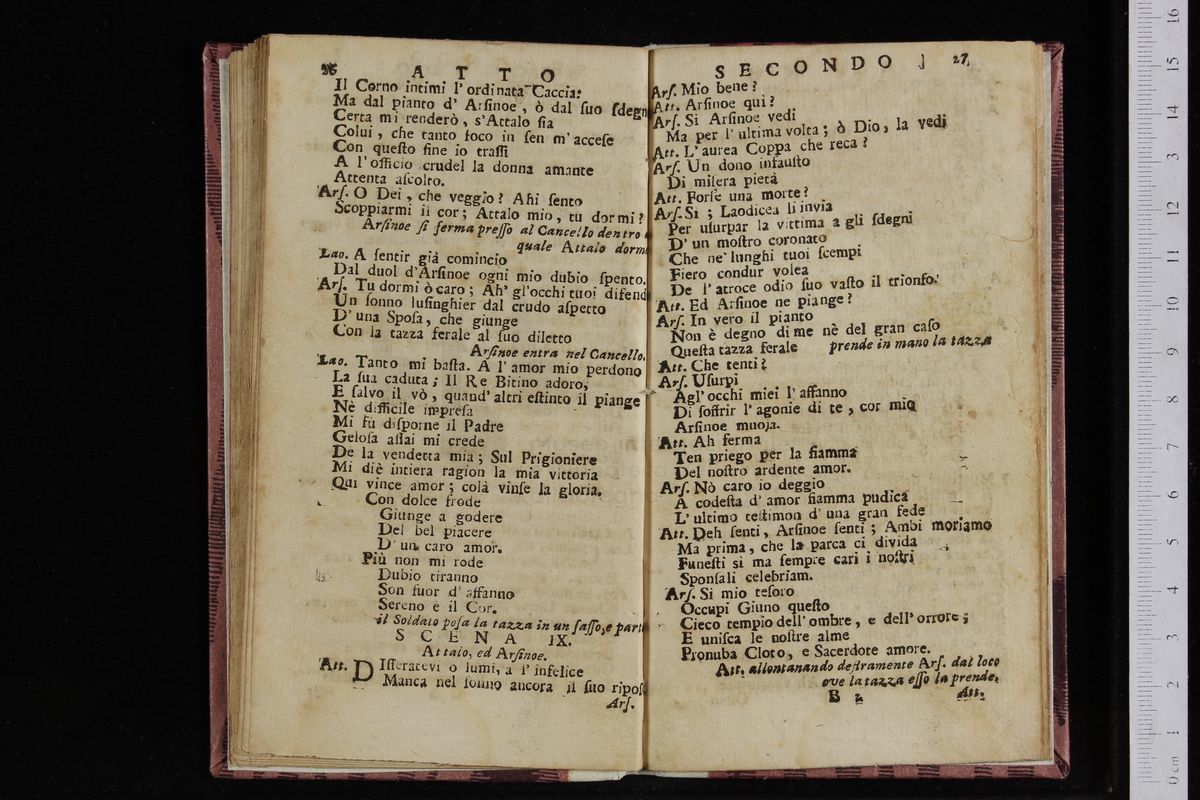 26 ATTO
Il Corno intimi l'ordinata Caccia:
Ma dal pianto d' Arſinoe, ò dal ſuo ſdegn
Certa mi renderò, s'Attalo ſia
Colui, che tanto foco in ſen m'acceſe
Con queſto fine io traſſi
A l'officio crudel la donna amante
Attenta aſcolto.
Arſ. O Dei, che veggio? Ahi ſento
Scoppiarmi il cor; Attalo mio, tu dormi?
Arſinoe ſi ferma preſſo al Cancello dentro
quale Attalo dorm
Lao. A ſentir già comincio
Dal duol d'Arſinoe ogni mio dubio ſpento.
Arſ. Tu dormi ò caro; Ah' gl'occhi tuoi difend
Un ſonno luſinghier dal crudo aſpetto
D'una Spoſa, che giunge
Con la tazza ferale al ſuo diletto
Arſinoe entra nel Cancello.
Lao. Tanto mi baſta. A l'amor mio perdono
La ſua caduta; Il Re Bitino adoro,
E ſalvo il vò, quand'altri eſtinto il piange
Nè difficile impreſa
Mi fù diſporne il Padre
Geloſa aſſai mi crede
De la vendetta mia; Sul Prigioniere
Mi diè intiera ragion la mia vittoria
Qui vince amor; colà vinſe la gloria.
Con dolce frode
Giunge a godere
Del bel piacere
D'un caro amor.
Più non mi rode
Dubio tiranno
Son fuor d'affanno
Sereno è il Cor.
il Soldato poſa la tazza in un ſaſſo, e part
SCENA IX.
Attalo, ed Arſinoe.
Att. DIſſeratevi o lumi, a l'infelice
Manca nel ſonno ancora il ſuo ripoſ
Arſ.
SECONDO 27
Arſ. Mio bene?
Att. Arſinoe qui?
Arſ. Si Arſinoe vedi
Ma per l'ultima volta; ò Dio, la vedi
Att. L'aurea Coppa che reca?
Arſ. Un dono infauſto
Di miſera pietà
Att. Forſe una morte?
Arſ. Si; Laodicea li invia
Per uſurpar la vittima a gli ſdegni
D'un moſtro coronato
Che ne' lunghi tuoi ſcempi
Fiero condur volea
De l'atroce odio ſuo vaſto il trionfo.
Att. Ed Arſinoe ne piange?
Arſ. In vero il pianto
Non è degno di me nè del gran caſo
Queſta tazza ferale prende in mano la tazza
Att. Che tenti?
Arſ. Uſurpi
Agl'occhi miei l'affanno
Di ſoffrir l'agonie di te, cor mio
Arſinoe muoja.
Att. Ah ferma
Ten priego per la fiamma
Del noſtro ardente amor.
Arſ. Nò caro io deggio
A codeſta d'amor fiamma pudica
L'ultimo teſtimon d'una gran fede
Att. Deh ſenti, Arſinoe ſenti; Ambi moriamo
Ma prima, che la parca ci divida
Funeſti sì ma ſempre cari i noſtri
Sponſali celebriam.
Arſ. Si mio teſoro
Occupi Giuno queſto
Cieco tempio dell'ombre, e dell'orrore;
E uniſca le noſtre alme
Pronuba Cloto, e Sacerdote amore.
Att. allontanando deſtramente Arſ. dal loco
ove la tazza eſſo la prende.
B 2 Att.
0 cm 1 2 3 4 5 6 7 8 9 10 11 12 3 14 15 16